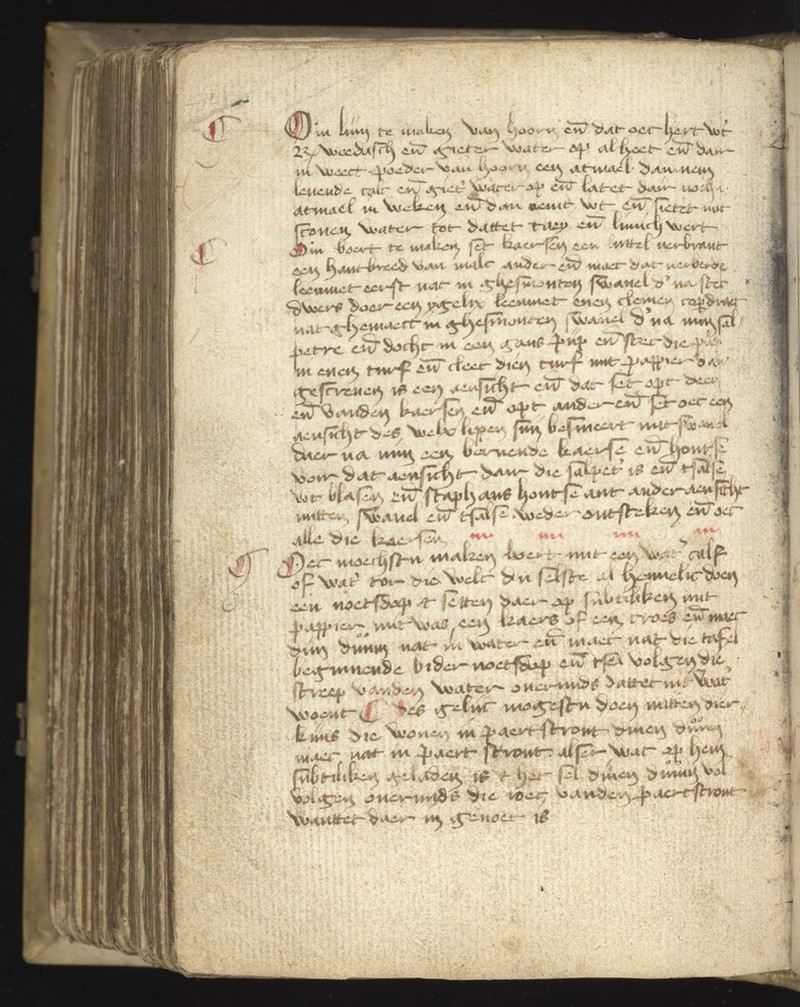 Om lijm te maken van hoorn en̄ dat oec hert wt
weedasch en̄ gieter water op al heet en̄ daer
in weect poeder van hoorn een atmael dan nem
leuende calc en̄ giet water op en̄ latet daer noch .i.
atmael in weken en̄ dan nemt wt en̄ sietet mit
sconen water tot dattet taey en̄ limich wert
Om boert te maken set kaersen een luttel verbrant
een hantbreed van malc ander en̄ maect dat
leemmet eerst nat in ghesmonten swauel d'na stect
dwers doer een ygelix leemmet enen clenen coperdraet
nat ghemaect in ghesmonten swauel d'na nim sal
petre en̄ docht in een gans pijp en̄ stect die
in enen turf en̄ cleet dien turf mit pappier daer
gescreuen is een aensicht en̄ dat set opt een
en̄ vanden kaersen en̄ opt ander en̄ set oec een
aensicht des welx lipen sijn besmeert mit swauel
daer na nim een bernende kaerse en̄ hontse
voir dat aensicht daer die salpet' is en̄ tsalse
wt blasen en̄ staphans hontse ant ander aensicht
mitten swauel en̄ tsalse weder ontsteken en̄ oec
alle die kaersen
Oec moechstu maken boert mit een wat' calf
of wat' tor die welc du selste al hemelic doen
een noetsdop & setten daer op subtiliken mit
pappier mit was een kaers of een croes en̄ maec
dijn dumm nat in water en̄ maec nat die tafel
beginnende bider noetsdop en̄ tsel volgen die
streep vanden water ouermids dattet int wat'
woent Des gelijc mogestu doen mitten dier
kijns die wonen in paertstront dinen dumm
maec nat in paert stront alser wat op hem
subtiliken geladen is & het sel dinen dumm vol
volgen ouermids die roec vanden paertstront
wanttet daer in genoet is